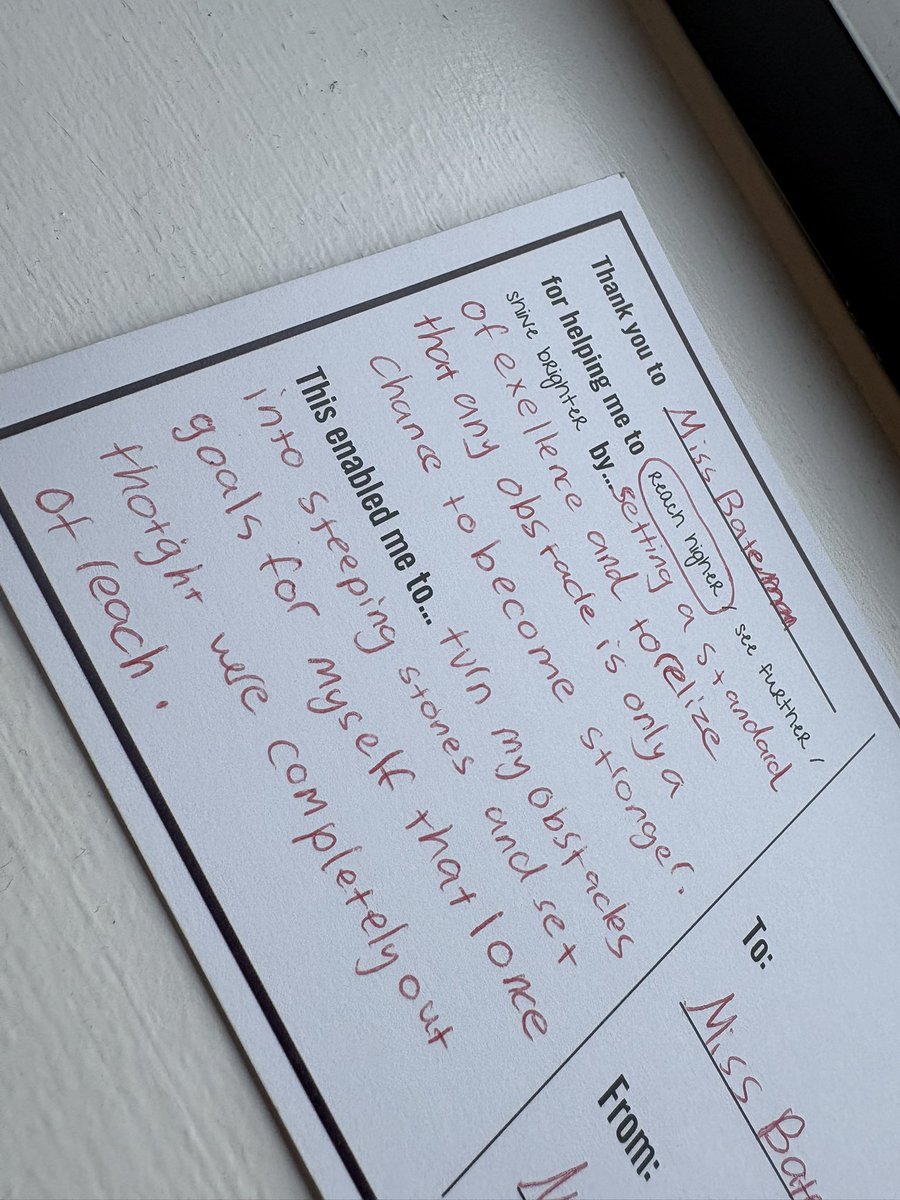 Thank you to Miss Bateman
for helping me to reach higher / see further /
shine brighter by... setting a standard
of exellence and to relize
that any obstacle is only a
chance to become stronger.
This enabled me to... turn my obstacles
into steeping stones and set
goals for myself that I once
thotght were completely out
of reach.
To: Miss Bat
From: N